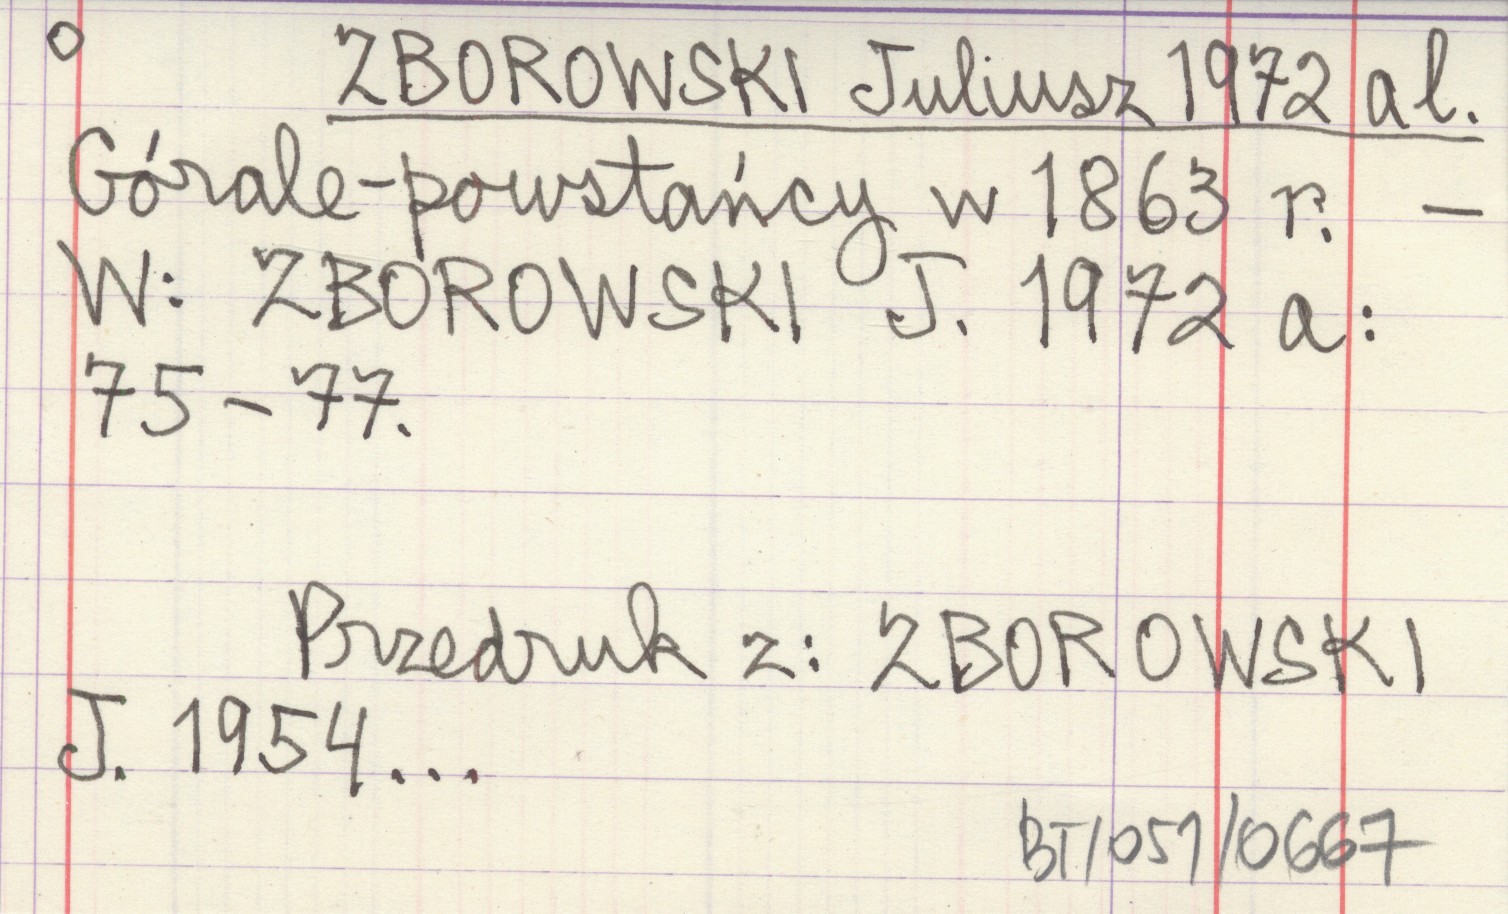 ° ZBOROWSKI Juliusz 1972 al.
Górale-powstańcy w 1863 r. –
W: ZBOROWSKI J. 1972 a:
75–77.
Przedruk z: ZBOROWSKI
J. 1954...
BT/051/0667